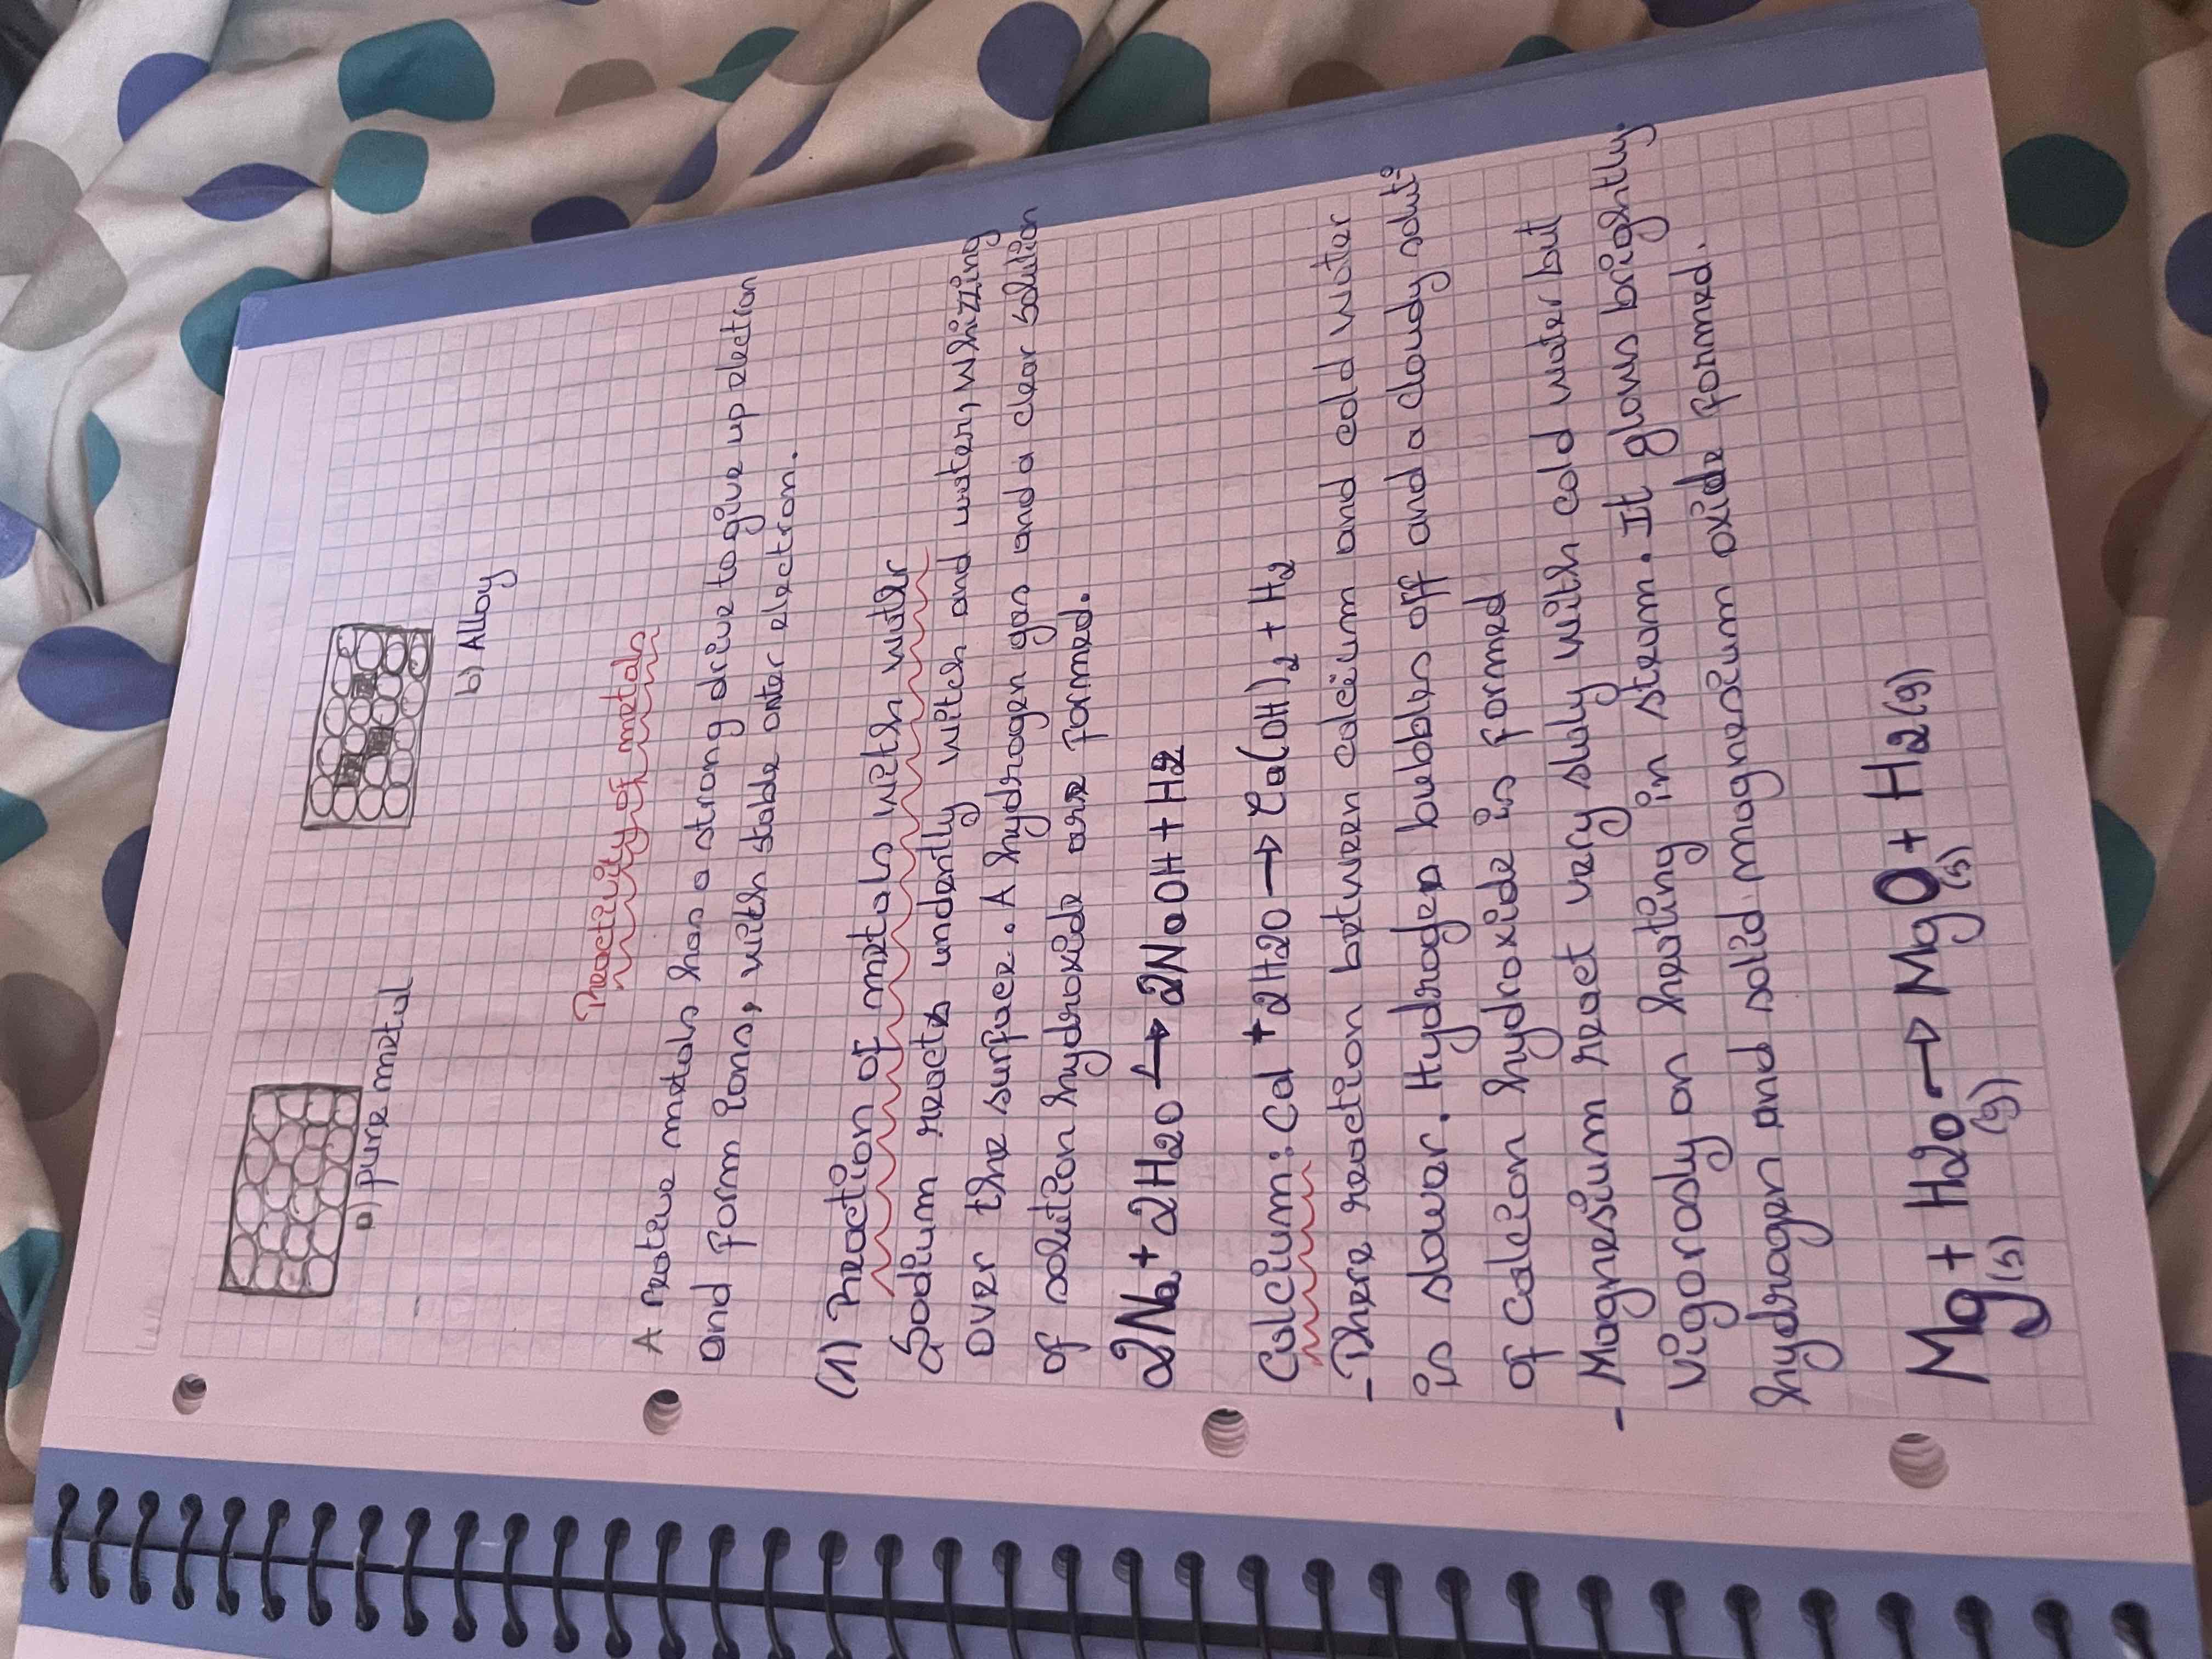 a) pure metal
b) Alloy
Reactivity of metals
A reative metals has a strong drive to give up electron
and form ions, with stable outer electron.
(1) Reaction of metals with water
Sodium reacts undently witch and water, whizzing
over the surface. A hydrogen gas and a clear solution
of solution hydroxide are formed.
2Na + 2H2O → 2NaOH + H2
Calcium: Cal + 2H2O → Ca(OH)2 + H2
- There reaction between calcium and cold water
is slower. Hydrogen bubbles off and a cloudy soluti
of calcion hydroxide is formed
- Magnesium react very slwly with cold water but
vigorosly on heating in steam. It glows brightly.
hydrogen and solid magnesium oxide formed.
Mg(s) + H2O(g) → MgO(s) + H2(g)